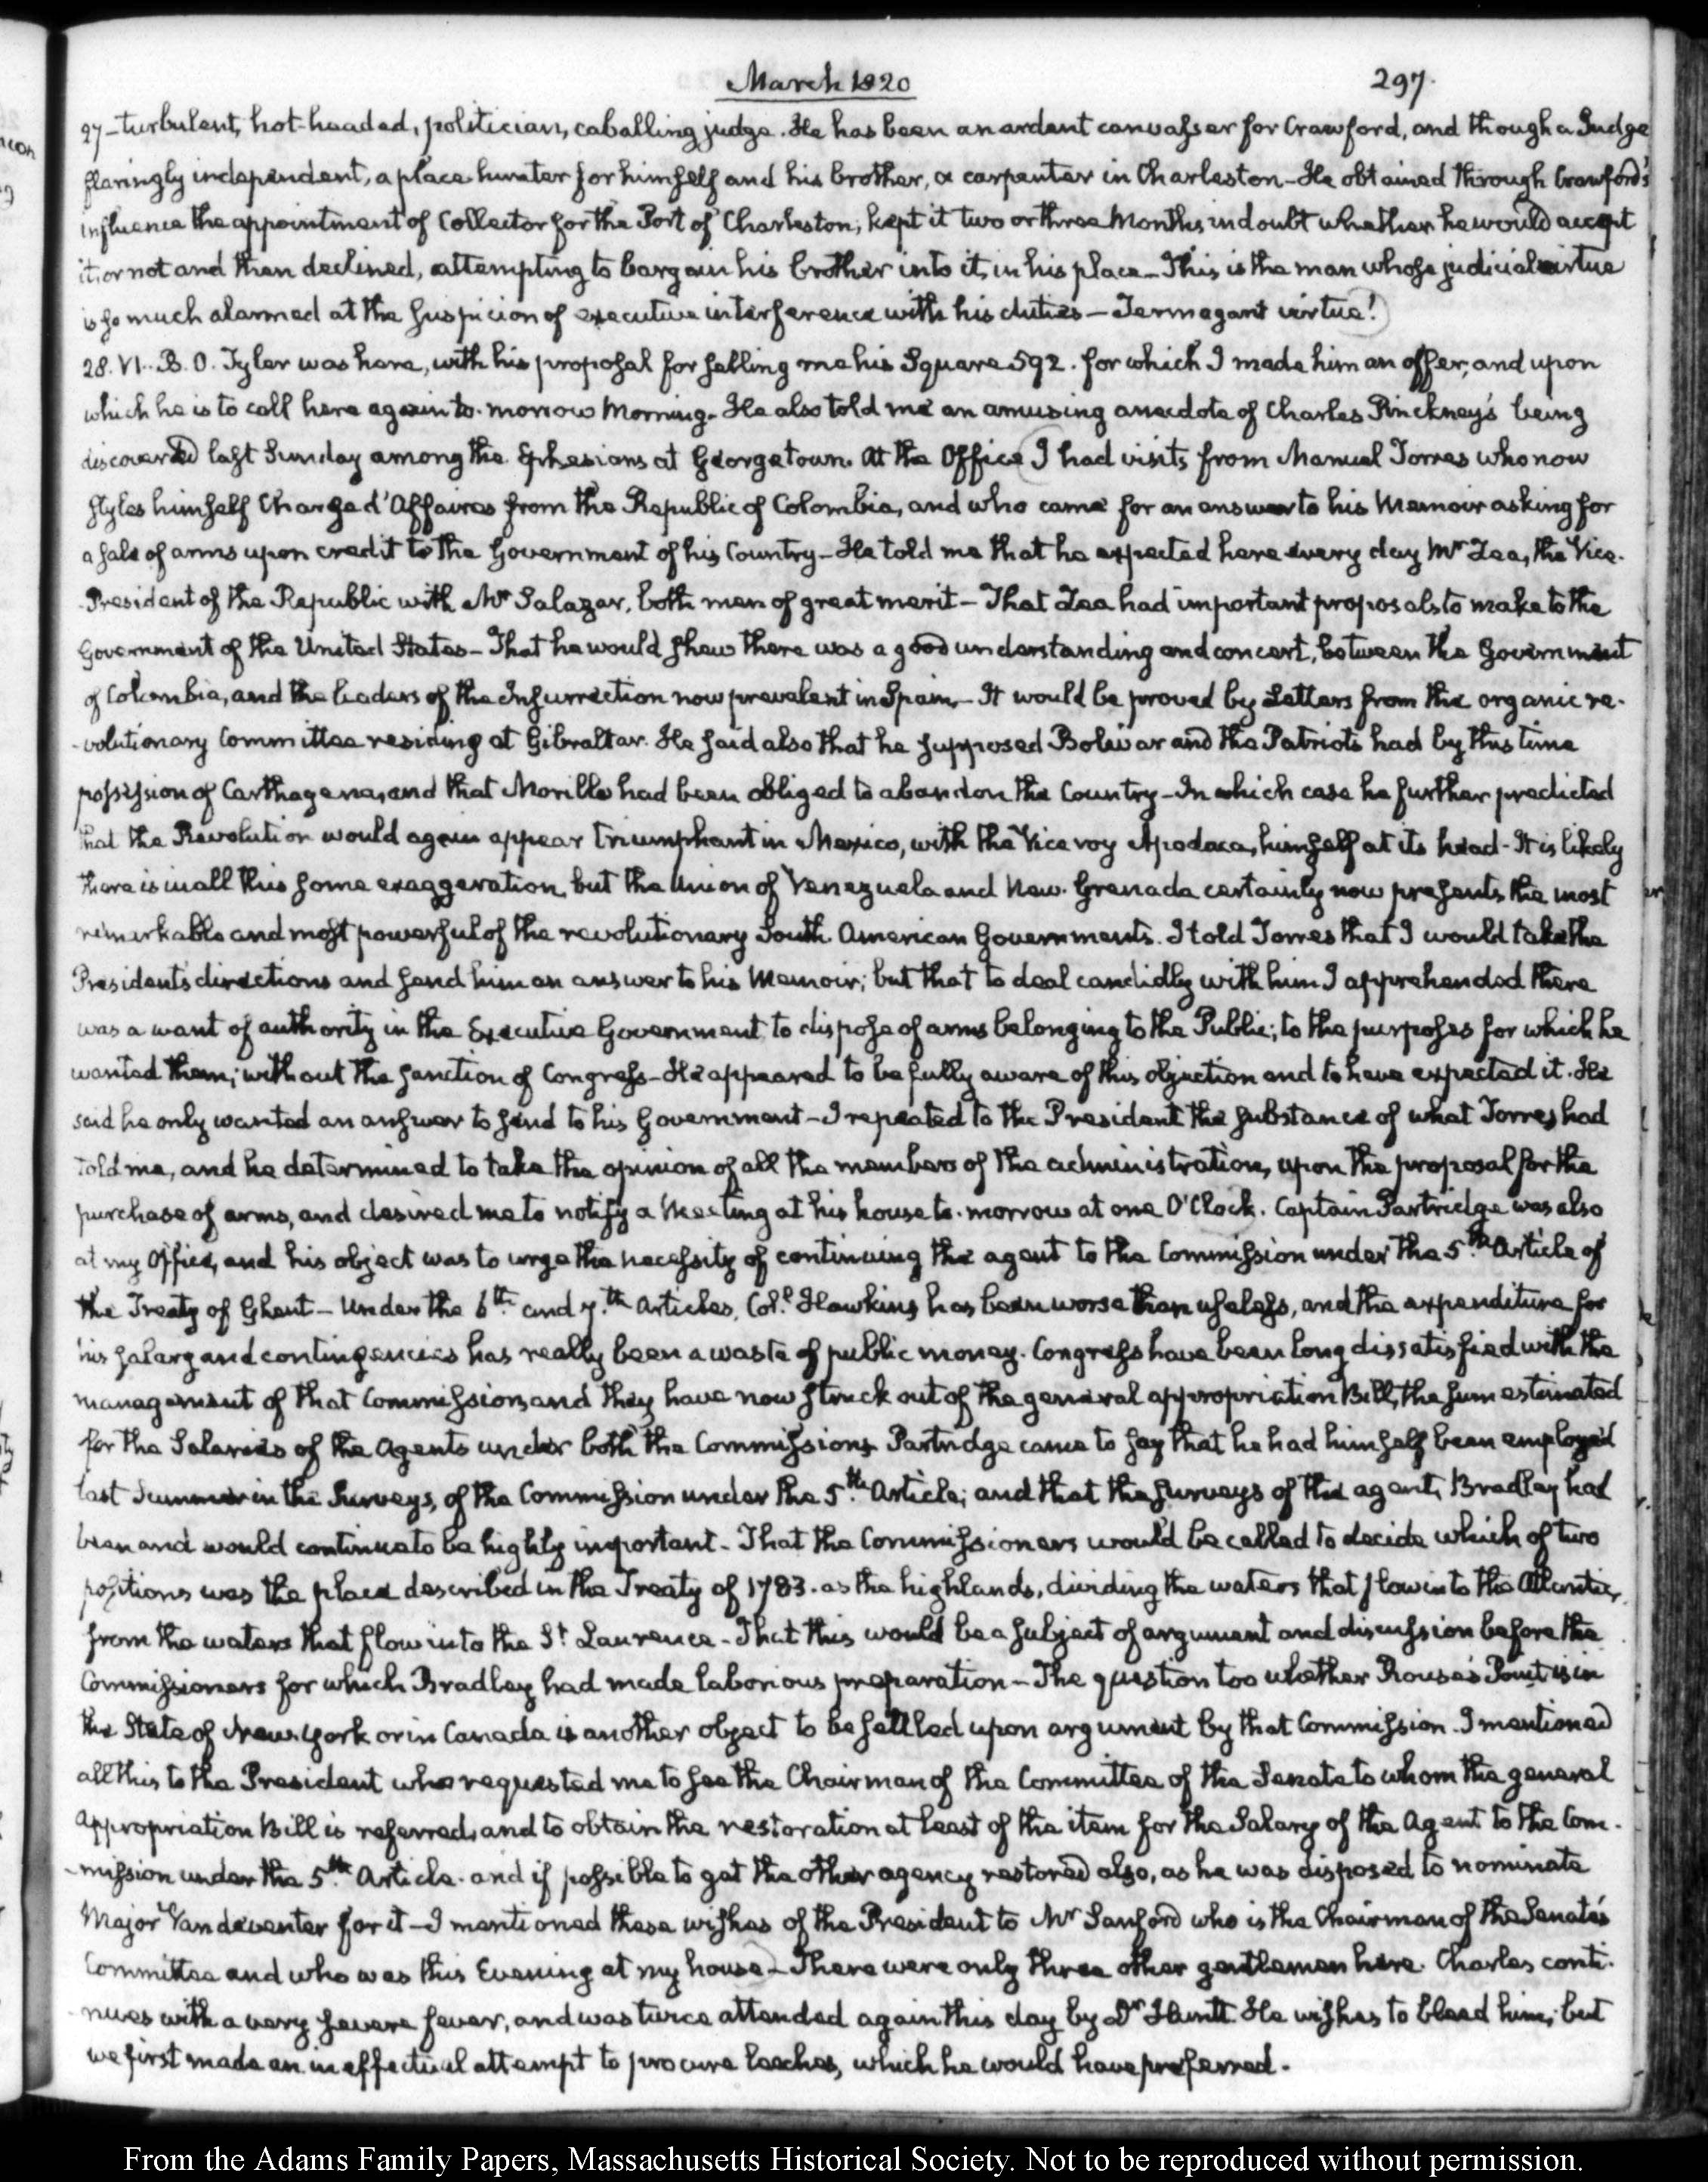 March 1820
297.
27 - turbulent, hot-headed, politician, caballing judge. He has been an ardent canvasser for Crawford, and though a Judge
flaringly independent, a place-hunter for himself and his brother, a carpenter in Charleston - He obtained through Crawford's
influence the appointment of Collector for the Port of Charleston; kept it two or three Months in doubt whether he would accept
it, or not and then declined, attempting to bargain his brother into it, in his place - This is the man whose judicial virtue
is so much alarmed at the suspicion of executive interference with his duties - Termagant virtue!
28. VI. B. O. Tyler was here, with his proposal for selling me his Square 592. for which I made him an offer, and upon
which he is to call here again to-morrow Morning - He also told me an amusing anecdote of Charles Pinckney's being
discovered last Sunday among the Ephesians at Georgetown. At the Office I had visits from Manuel Torres who now
styles himself Chargé d'Affaires from the Republic of Colombia, and who came for an answer to his Memoir asking for
a sale of arms upon credit to the Government of his Country - He told me that he expected here every day Mr Zea, the Vice-
-President of the Republic with Mr Salazar, both men of great merit - That Zea had important proposals to make to the
Government of the United States - That he would shew there was a good understanding and concert, between the Government
of Colombia, and the leaders of the Insurrection now prevalent in Spain - It would be proved by Letters from the organic re-
-volutionary Committee residing at Gibraltar. He said also that he supposed Bolivar and the Patriots had by this time
possession of Carthagena, and that Morillo had been obliged to abandon the Country - In which case he further predicted
that the Revolution would again appear triumphant in Mexico, with the Viceroy Apodaca, himself at its head - It is likely
there is in all this some exaggeration, but the Union of Venezuela and New-Grenada certainly now presents the most
remarkable and most powerful of the revolutionary South American Governments. I told Torres that I would take the
President's directions and send him an answer to his Memoir; but that to deal candidly with him I apprehended there
was a want of authority in the Executive Government to dispose of arms belonging to the Public; to the purposes for which he
wanted them; without the sanction of Congress - He appeared to be fully aware of this objection and to have expected it. He
said he only wanted an answer to send to his Government - I repeated to the President the substance of what Torres had
told me, and he determined to take the opinion of all the members of the administration, upon the proposal for the
purchase of arms, and desired me to notify a Meeting at his house to-morrow at one O'Clock. Captain Partridge was also
at my Office, and his object was to urge the necessity of continuing the agent to the Commission under the 5th Article of
the Treaty of Ghent - Under the 6th and 7th Articles, Col. Hawkins has been worse than useless, and the expenditure for
his salary and contingencies has really been a waste of public money. Congress have been long dissatisfied with the
management of that Commission, and they have now struck out of the general appropriation Bill, the sum estimated
for the Salaries of the Agents under both the Commissions. Partridge came to say that he had himself been employed
last Summer in the Surveys, of the Commission under the 5th Article; and that the surveys of the agent, Bradley had
been and would continue to be highly important - That the Commissioners would be called to decide which of two
positions was the place described in the Treaty of 1783. as the highlands, dividing the waters that flow into the Atlantic,
from the waters that flow into the St Laurence - That this would be a subject of argument and discussion before the
Commissioners for which Bradley had made laborious preparation - The question too whether Rouse's Point is in
the State of New York or in Canada is another object to be settled upon argument by that Commission. I mentioned
all this to the President who requested me to see the Chairman of the Committee of the Senate to whom the general
Appropriation Bill is referred, and to obtain the restoration at least of the item for the Salary of the Agent to the Com-
-mission under the 5th Article. and if possible to get the other agency restored also, as he was disposed to nominate
Major Vandeventer for it - I mentioned these wishes of the President to Mr Sanford who is the Chairman of the Senate's
Committee and who was this Evening at my house - There were only three other gentlemen here. Charles conti-
-nues with a very severe fever, and was twice attended again this day by Dr Huntt He wishes to bleed him; but
we first made an ineffectual attempt to procure leeches, which he would have preferred.
From the Adams Family Papers, Massachusetts Historical Society. Not to be reproduced without permission.